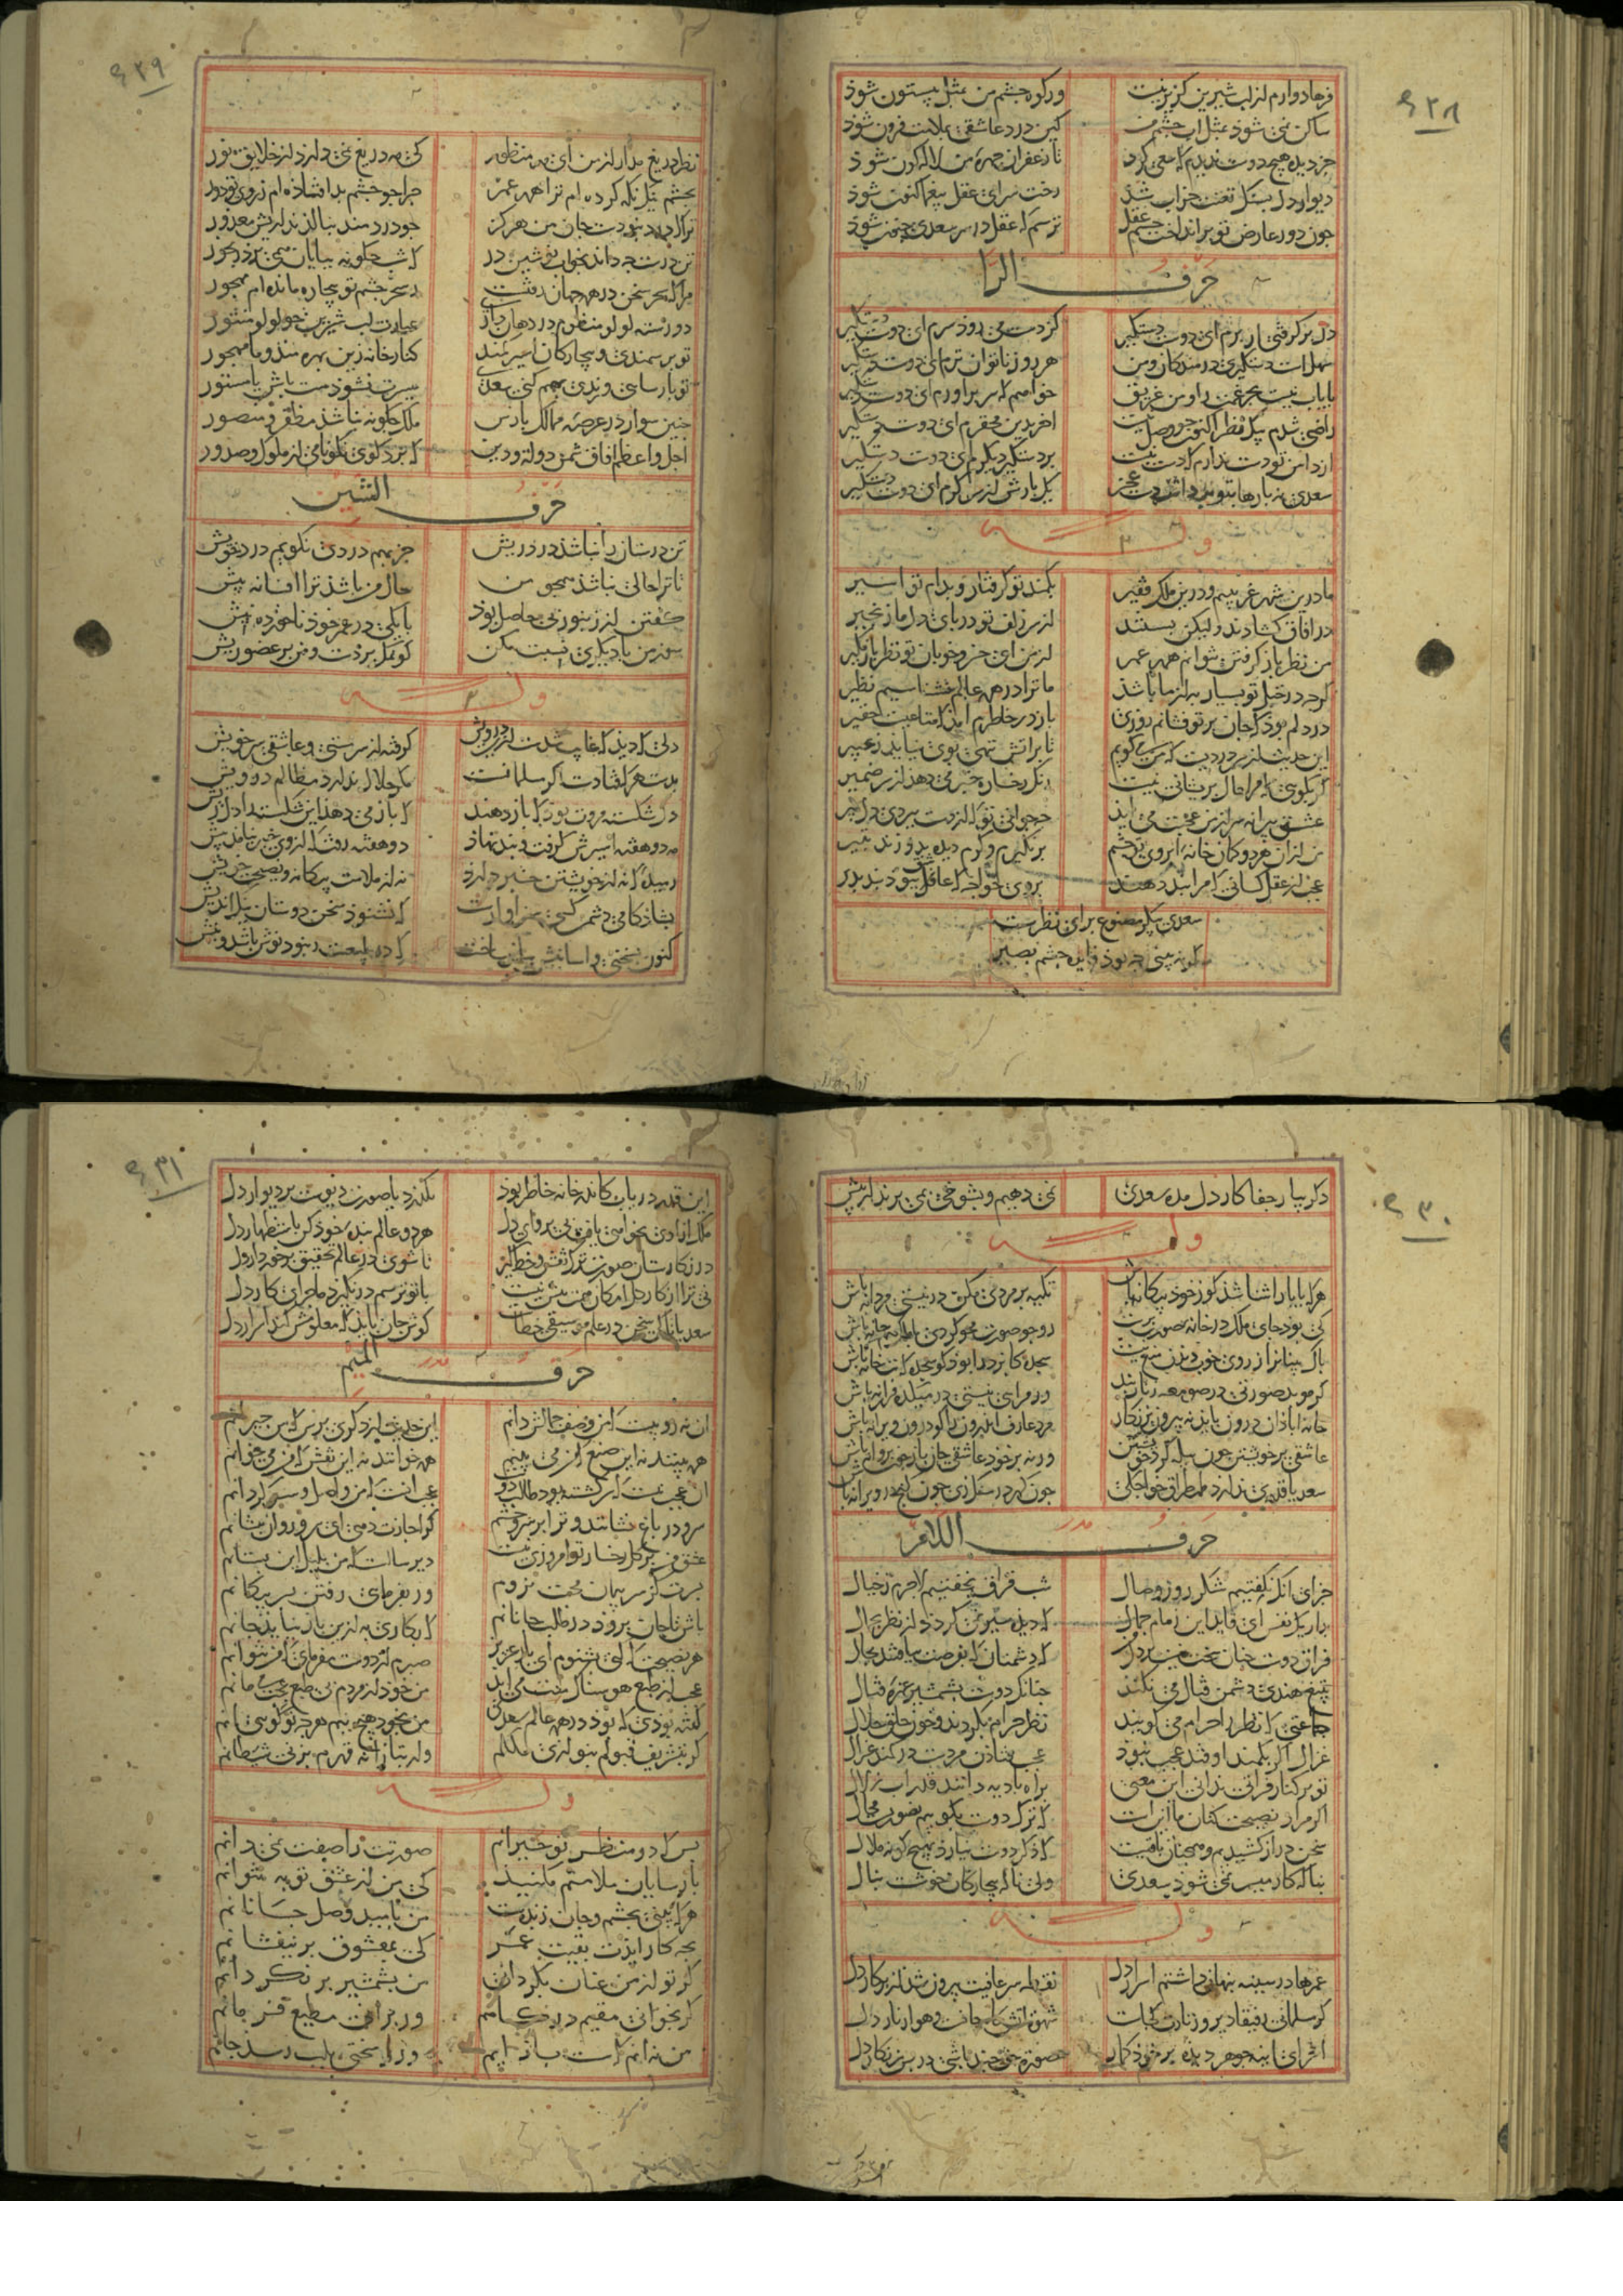 ۶۲۸
فرهادوارم از لب شیرین گزیر نیست ور کوه چشم من بمثل بیستون شوذ
ساکن نمی شوذ بمثل اب چشم من کین درد عاشقی بملامت فزون شوذ
جز دیده هیچ دوست ندیدم که سعی کرد تا زعفران چهره من لاله گون شوذ
دیوار دل بسنگ تعنت خراب شد رخت سرای عقل بیغما کنون شوذ
جون دور عارض تو برانداخت رسم عقل ترسم که عقل در سر سعدی جنون شوذ
حرف الرا
دل برگرفتی از برم ای دوست دستگیر کز دست می روذ سرم ای دوست دستگیر
سهل است دستگیری درمندگان و من هر روز ناتوان ترم ای دوست دستگیر
بایاب نیست بحر غمت را و من غریق خواهم که سر براورم ای دوست دستگیر
راضی شدم بیک نظر اکنون جو وصل نیست اخر بدین محقرم ای دوست دستگیر
از دامن تو دست ندارم که دست نیست بر دستگیر دیگرم ای دوست دستگیر
سعدی نه بارها بتو برداشت دست عجز یک بارش از سر کرم ای دوست دستگیر
وله
ما درین شهر غریبیم و درین ملک فقیر بکمند تو گرفتار و بدام تو اسیر
در افاق گشادند ولیکن بستند از سر زلف تو در بای دل ما زنجیر
من نظر باز گرفتن نتوانم همه عمر از من ای خسرو خوبان تو نظر باز مگیر
گرجه در خیل تو بسیار به از ما باشذ ما ترا در همه عالم نشناسیم نظیر
در دلم بوذ که جان بر تو فشانم روزی باز در خاطرم امذ که متاعیست حقیر
این حدیث از سر دردیست که من می گویم تا بر اتش ننهی بوی نیاید ز عبیر
گر بگویم که مرا حال بریشانی نیست رنگ رخسار خبر می دهذ از سر ضمیر
عشق بیرانه سر از من عجبت می ایذ جه جوانی تو که از دست ببردی دل بیر
من از ان هر دو کمان خانه ابروی تو جشم برنگیرم وگرم دیده بدوزند بتیر
عجب از عقل کسانی که مرا بند دهند برو ای خواجه که عاقل نبود بند بذیر
سعدی بیکر مصنوع برای نظرست
گر نه بینی جه بوذ فایده جشم بصیر
۶۲۹
نظر دریغ مدار از من ای مه منظور که مه دریغ نمی دارذ از خلایق نور
بچشم نیک نگه کرده ام ترا همه عمر جرا جو جشم بد افتاذه ام ز روی تو دور
ترا که درد نبوذست جان من هرگز جو دردمند بنالذ نداریش معذور
تن درست جه داند بخواب نوشین در که شب جگونه ببایان همی برذ رنجور
مرا که سحر سخن در همه جهان رفتست ز سحر جشم تو بیچاره مانده ام مسحور
دو رسته لولو منظوم در دهان داری عبارت لب شیرین جو لولو منثور
تو بر سمندی و بیچارگان اسیر کمند کنار خانه زین بهره مند و ما مهجور
تو بارسایی و رندی بهم کنی سعدی میسرت نشوذ مست باش یا مستور
جنین سوار در عرصه ممالک بارس ملک جگونه نباشذ مظفر و منصور
اجل و اعظم افاق شمس دولة و دین که برد گوی نکونامی از ملوک و صدور
حرف الشین
تن درستان را نباشد درد ریش جز بهم دردی نگویم درد خویش
تا ترا حالی نباشذ همجو من حال من باشذ ترا افسانه بیش
گفتن از زنبور بی حاصل بوذ با یکی در عمر خوذ ناخورده نیش
سوز من با دیگری نسبت مکن کو نمک بر دست و من بر عضو ریش
وله
دلی که دیذ که غایب شدست ازین درویش گرفته از سر مستی و عاشقی سر خویش
بدست هر که افتادست اگر مسلمانست مگر حلال ندارد مظالم درویش
دل شکسته مروت بوذ که باز دهند که باز می دهذ این شکسته را دل ریش
مه دو هفته اسیرش گرفت و بند نهاذ دو هفته رفت که از وی خبر نیامذ بیش
رمیده که نه از خویشتن خبر دارذ نه از ملامت بیگانه و نصیحت خویش
بشاذکامی دشمن کسی سزاوارست که نشنوذ سخن دوستان نیک اندیش
کنون بسختی و اسانیش ببایذ ساخت که در طبیعت زنبور نوش باشد و نیش
۶۳۰
دگر بیار جفا کار دل مده سعدی نمی دهیم و بشوخی همی برند از بیش
وله
هرکه با یار اشنا شذ گو ز خود بیگانه باش تکیه بر مردی مکن در نیستی مردانه باش
کی بود جای ملک در خانه صورت برست رو جو صورت محو کردی با ملک هم خانه باش
باک بینانرا ز روی خوب دیدن منع نیست سجده کایزد را بوذ گو سجده گه بتخانه باش
گر مرید صورتی در صومعه زنار بند ور مرای نیستی در میکده فرزانه باش
خانه اباذان درون بایذ نه بیرون بر نگار مرد عارف اندرون را گو درون ویرانه باش
عاشقی بر خویشتن جون بیله گرد خویشتن ور نه بر خود عاشقی جان باز جون بروانه باش
سعدیا قدری ندارد طمطراق خواجگی جون گهر در سنگ زی جون گنج در ویرانه باش
حرف اللام
جزای انک نگفتیم شکر روز وصال شب فراق نخفتیم لاجرم ز خیال
بدار یک نفس ای قاید این زمام جمال که دیده سیر نمی گرذد از نظر بجمال
فراق دوست جنان سخت نیست بر دل که دشمنان که بفرصت بیافتند مجال
بتیغ هندی دشمن قتال می نکند جنانک دوست بشمشیر غمزه قتال
جماعتی که نظر را حرام می گویند نظر حرام بکردند و خون خلق حلال
غزال اگر بکمند اوفتد عجب نبود عجب فتاذن مردست در کمند غزال
تو بر کنار فراتی ندانی این معنی براه بادیه دانند قدر اب زلال
اگر مراد نصیحت کنان ما اینست که ترک دوست بگویم تصوریست محال
سخن دراز کشیدیم و همجنان باقیست که ذکر دوست نیارذ بهیچ گونه ملال
بناله کار میسر نمی شوذ سعدی ولی ناله بیچارگان خوشست بنال
وله
عمرها در سینه بنهان داشتم اسرار دل
گر مسلمانی رفیقا دیر و زنارت کجاست شهوت اتشگاه جانست و هوا زنار دل
اخر ای اینه جوهر دیده بر خوذ گمار صورت حق جند باشی در بس زنگار دل
۶۳۱
این قدر در یاب کاندر خانه خاطر بود نگذرد یا صورت دیوست بر دیوار دل
ملک ازادی نخواهی یافت بی بروای دل هر دو عالم بنده خوذ کن باستظهار دل
در نگارستان صورت ترک نقش و خط گیر تا شوی در عالم تحقیق برخوردار دل
نی ترا از کار دل امکان همت بیش نیست با تو ترسم در نگیرد ماجرای کار دل
سعدیا با کس سخن در علم موسیقی خطاست گوش جان بایذ که معلومش کند اسرار دل
حرف المیم
ان نه رویست که من وصف جمالش دانم این حدیث از دگری برس که من حیرانم
همه بینند نه این صنع که من می بینم همه خوانند نه این نقش که من می خوانم
ان عجب نیست که سرگشته بود طالب دوست عجب انست که من واصل و سرگردانم
سرو در باغ نشانند و ترا بر سر و جشم گر اجازت دهی ای سرو روان بنشانم
عشق من بر گل رخسار تو امروزی نیست دیر سالست که من بلبل این بستانم
بسرت کز سر بیمان محبت نروم ور بفرمای رفتن بسر بیکانم
باش تا جان بروذ در طلب جانانم که بکاری به ازین باز نیایذ جانم
هر نصیحت که کنی بشنوم ای یار عزیز صبرم از دوست مفرمای که من نتوانم
عجب از طبع هوسناک منت می ایذ من خود از مردم بی طبع عجب می مانم
گفته بوذی که بوذ در همه عالم سعدی من بخود هیج نیم هرجه تو گویی انم
گر بتشریف قبولم بنوازی ملکم ور بتازیانه قهرم بزنی شیطانم
وله
بس که در منظر تو حیرانم صورتت را صفت نمی دانم
بارسایان ملامتم مکنید که من از عشق توبه نتوانم
هر که بینی بجشم و جان زندست من بامید وصل جانانم
بجه کار ایذت بقیت عمر که بمعشوق بر نیفشانم
گر تو از من عنان بگردانی من بشمشیر بر نگردانم
گر بخوانی مقیم درگاهم ور برانی مطیع فرمانم
من نه انم که سست باز ایم ور ز سختی بلب رسد جانم